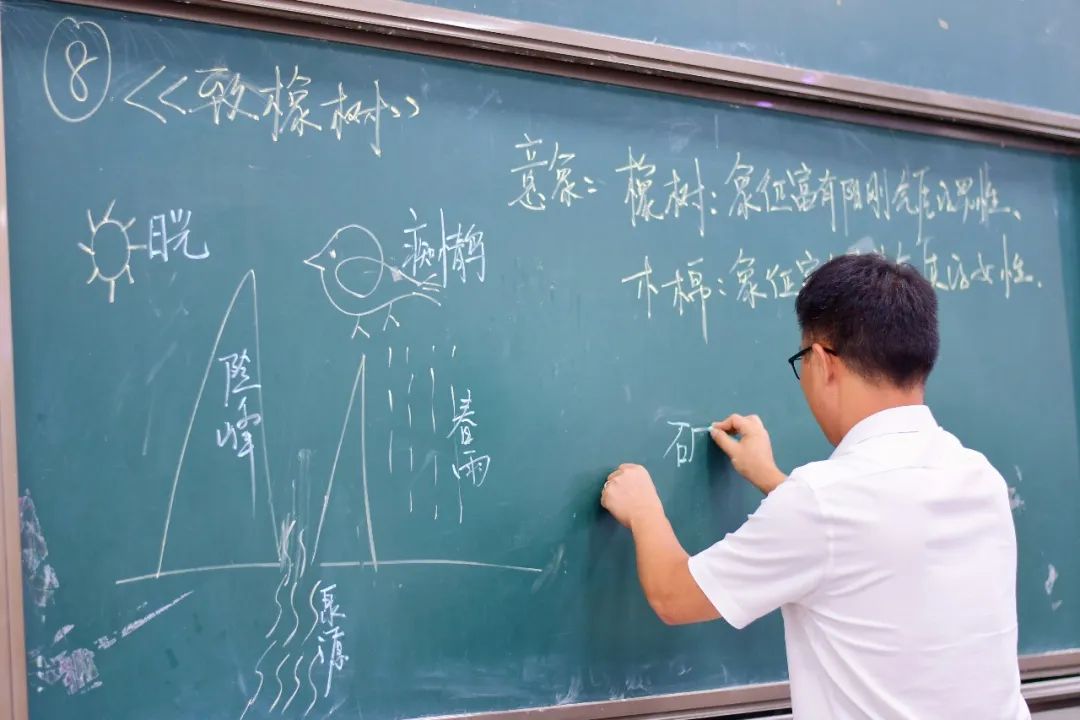 ⑧ <<致橡树>>
意象：橡树：象征富有阳刚气质的男性、
木棉：象征
女性.
日光
痴情鸟
险峰
春雨
泉源
石